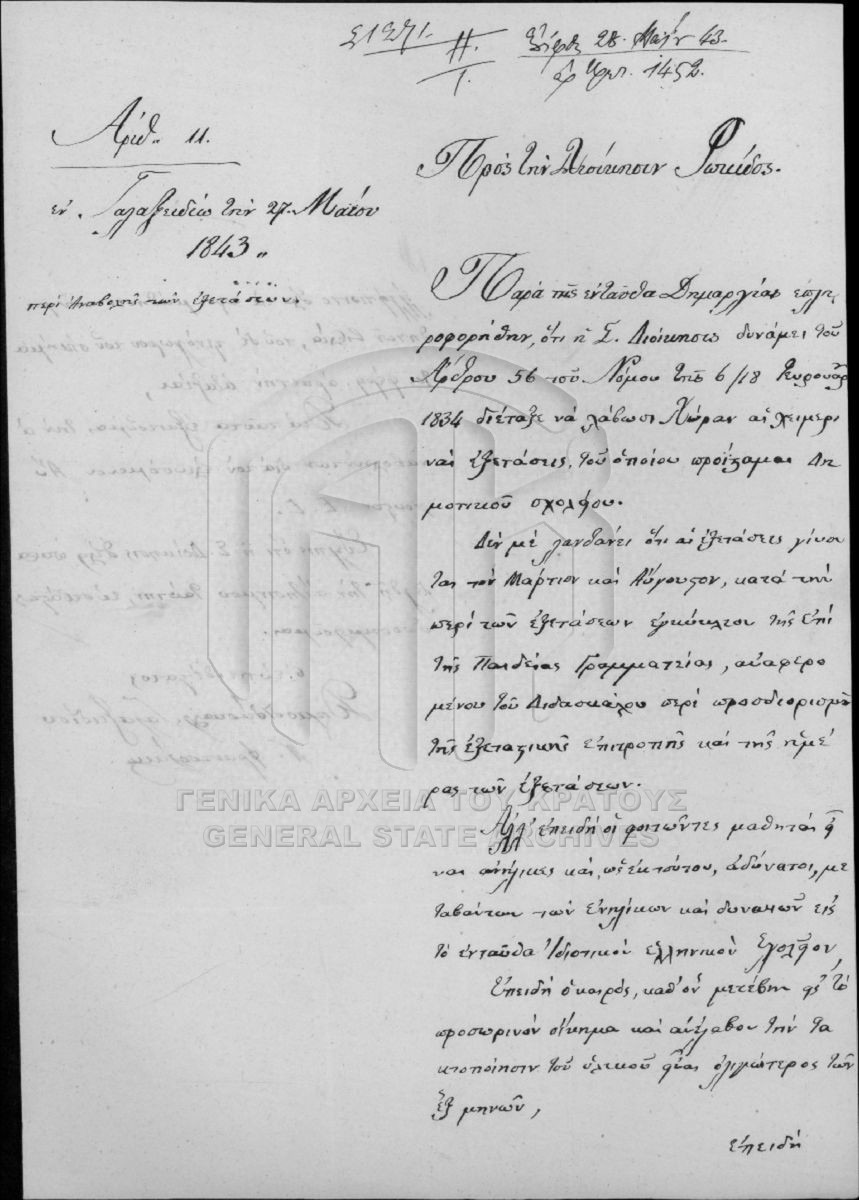 Σίφθ 28. Μαΐου 43.
1452.
Αριθ. 11.
Πρὸς τὴν Διοίκησιν Φωκίδος.
ἐν Γαλαξειδίῳ τὴν 27 Μαΐου
1843
περὶ ἀναβολῆς τῶν ἐξετάσεων.
Παρὰ τῆς ἐνταῦθα Δημαρχίας ἐπλη
ροφορήθην, ὅτι ἡ Σ. Διοίκησις δυνάμει τοῦ
Ἄρθρου 56 τοῦ Νόμου τῆς 6/18 Φευρουαρ
1834 διέταξε νὰ λάβωσι χώραν αἱ χειμερι
ναὶ ἐξετάσεις, τοῦ ὁποίου προΐσταμαι Δη
μοτικοῦ σχολείου.
Δὲν μὲ λανθάνει ὅτι αἱ ἐξετάσεις γίνον
ται τὸν Μάρτιον καὶ Αὔγουστον, κατὰ τὴν
περὶ τῶν ἐξετάσεων ἐγκύκλιον τῆς ἐπὶ
τῆς Παιδείας Γραμματείας, ἀναφερο
μένου τοῦ Διδασκάλου περὶ προσδιορισμοῦ
τῆς ἐξεταστικῆς ἐπιτροπῆς καὶ τῆς ἡμέ
ρας τῶν ἐξετάσεων.
ΓΕΝΙΚΑ ΑΡΧΕΙΑ ΤΟΥ ΚΡΑΤΟΥΣ
GENERAL STATE ARCHIVES
Ἀλλ' ἐπειδὴ οἱ φοιτῶντες μαθηταὶ
ναι ἀνήλικες καὶ, ὡς ἐκ τούτου, ἀδύνατοι, με
ταβάντων τῶν ἐνηλίκων καὶ δυνατῶν εἰς
τὸ ἐνταῦθα Ἰδιοτικὸν ἑλληνικὸν Σχολεῖον,
Ἐπειδὴ ὁ καιρὸς, καθ' ὃν μετέβην εἰς τὸ
προσωρινὸν οἴκημα καὶ ἀνέλαβον τὴν τα
κτοποίησιν τοῦ ὑλικοῦ εἶναι ὀλιγώτερος τῶν
ἓξ μηνῶν,
ἐπειδὴ